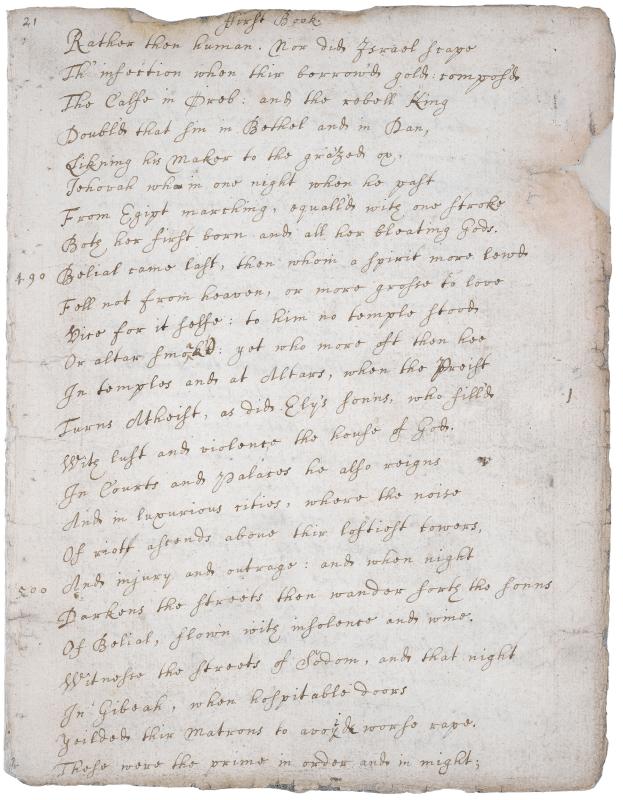 21
First Book.
Rather then human. Nor did Israel scape
Th' infection when thir borrow'd gold: compos'd
The Calfe in Oreb: and the rebell King
Doubl'd that sin in Bethel and in Dan,
Likning his Maker to the grazed ox,
Jehovah who in one night when he past
From Egipt marching, equall'd with one stroke
Both her first born and all her bleating Gods.
490 Belial came last, then whom a spirit more lewd
Fell not from heaven, or more grosse to love
Vice for it selfe: to him no temple stood
Or altar smoak'd: yet who more oft then hee
In temples and at Altars, when the Preist
Turns Atheist, as did Ely's sonns, who fill'd
With lust and violence the house of God.
In Courts and Palaces he also reigns
And in luxurious cities, where the noise
Of riott ascends above thir loftiest towers,
And injury and outrage: and when night
500 Darkens the streets then wander forth the sonns
Of Belial, flown with insolence and wine.
Witnesse the streets of Sodom, and that night
In Gibeah, when hospitable doors
Yeilded thir Matrons to worse rape.
These were the prime in order and in might;